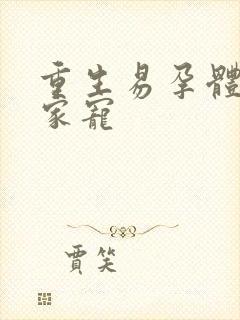 重生易孕體
家寵
賈笑